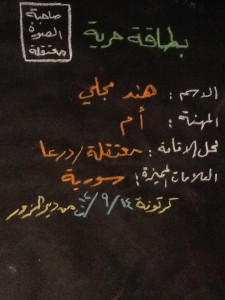 بطاقة حرية
صاحبة
الصورة
معتقلة
الاسم: هند مجلي
المهنة: أم
محل الاقامة: معتقلة/درعا
العلامات المميزة: سورية
كرتونة من دير الزور ١٤/٩/